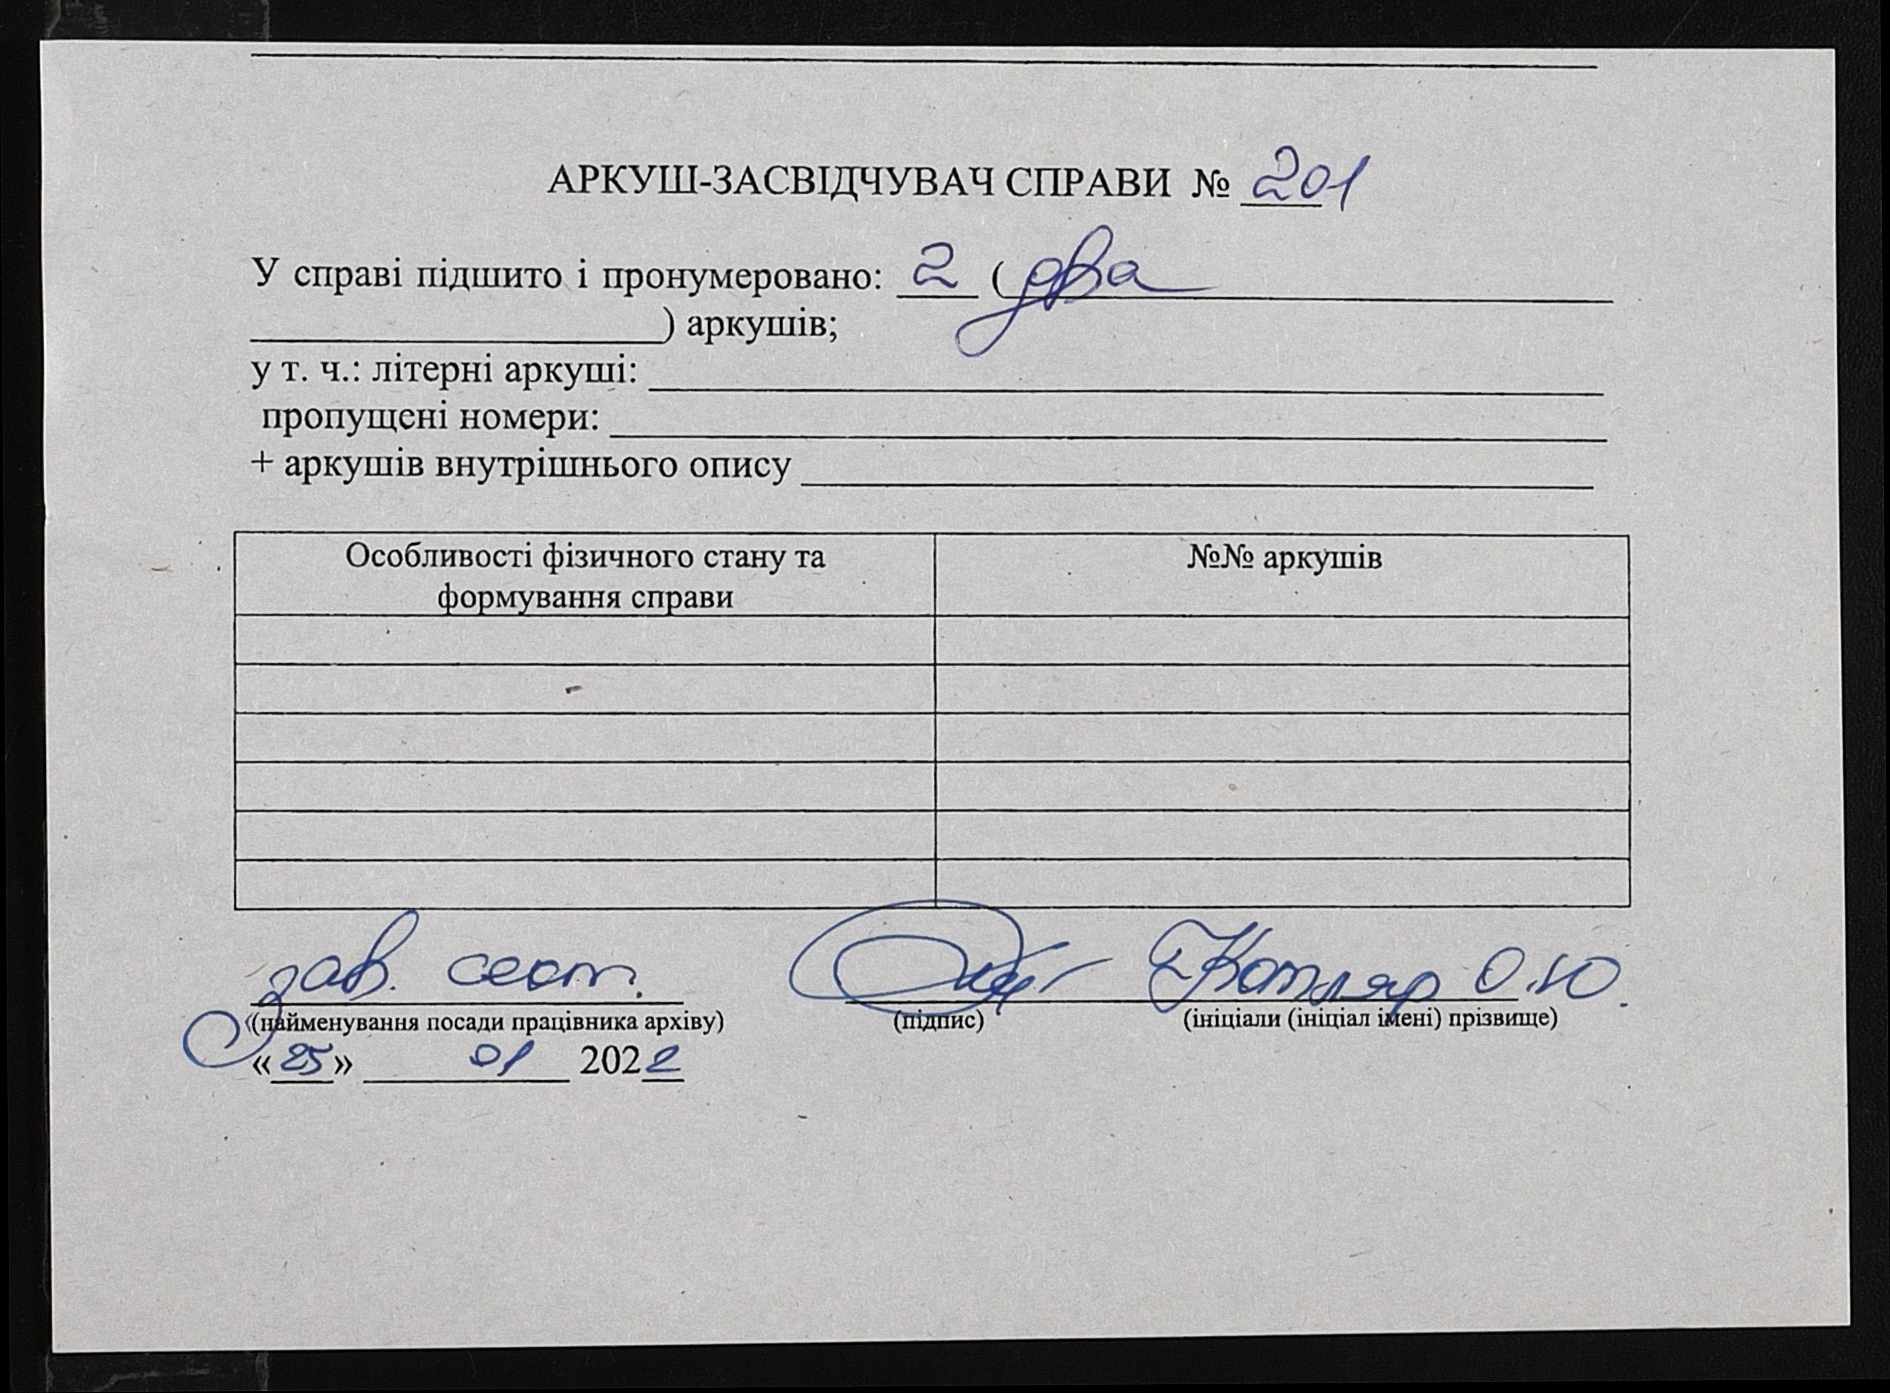 АРКУШ-ЗАСВІДЧУВАЧ СПРАВИ № 201
У справі підшито і пронумеровано: 2 (два
) аркушів;
у т. ч.: літерні аркуші:
пропущені номери:
+ аркушів внутрішнього опису
Особливості фізичного стану та
формування справи
№№ аркушів
зав. сект. Котляр О.Ю.
(найменування посади працівника архіву) (підпис) (ініціали (ініціал імені) прізвище)
«25» 01 2022